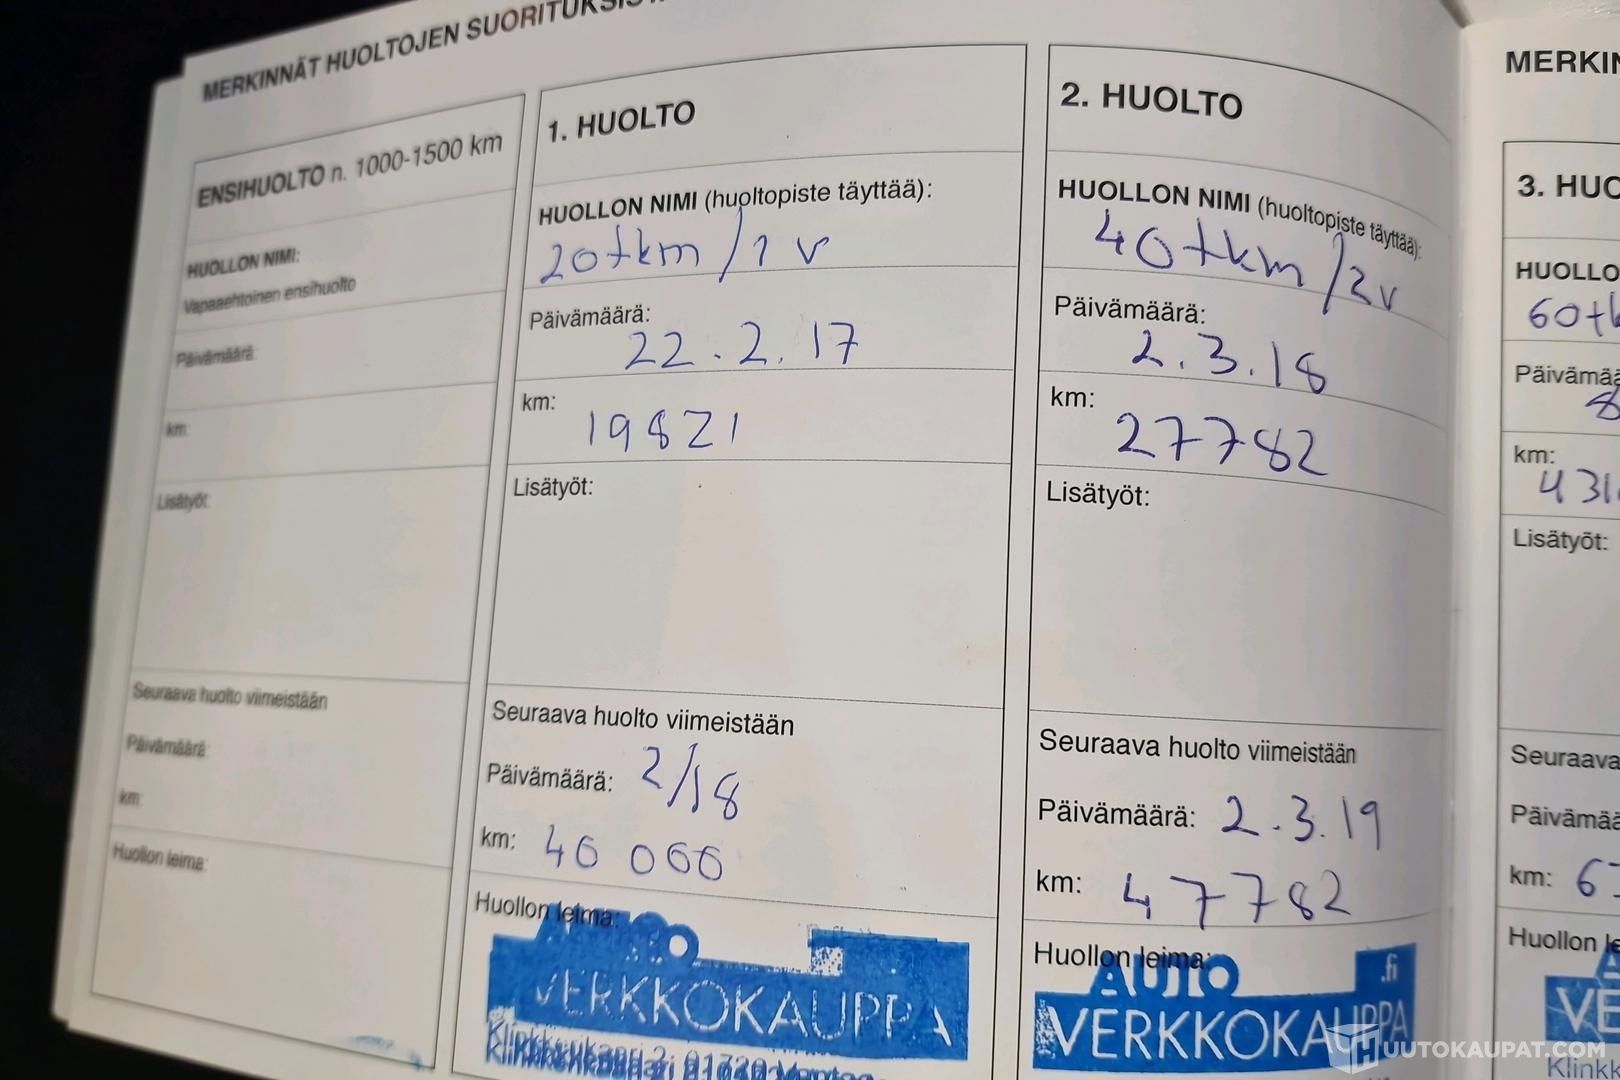 MERKINNÄT HUOLTOJEN
ENSIHUOLTO n. 1000-1500 km
HUOLLON NIMI:
Vapaaehtoinen ensihuolto
Päivämäärä:
km:
Lisätyöt:
Seuraava huolto viimeistään
Päivämäärä:
km:
Huollon leima:
1. HUOLTO
HUOLLON NIMI (huoltopiste täyttää):
20tkm/1v
Päivämäärä:
22.2.17
km:
19821
Lisätyöt:
Seuraava huolto viimeistään
Päivämäärä: 2/18
km: 40 000
Huollon leima:
AUTO
VERKKOKAUPPA
2. HUOLTO
HUOLLON NIMI (huoltopiste täyttää):
40tkm/2v
Päivämäärä:
2.3.18
km:
27782
Lisätyöt:
Seuraava huolto viimeistään
Päivämäärä: 2.3.19
km: 47782
Huollon leima:
AUTO .fi
VERKKOKAUPPA
MERKIN
3. HUO
HUOLLO
60tk
Päivämää
8
km:
431
Lisätyöt:
Seuraava
Päivämää
km: 67
Huollon le
VE
Klinkk
HUUTOKAUPAT.COM